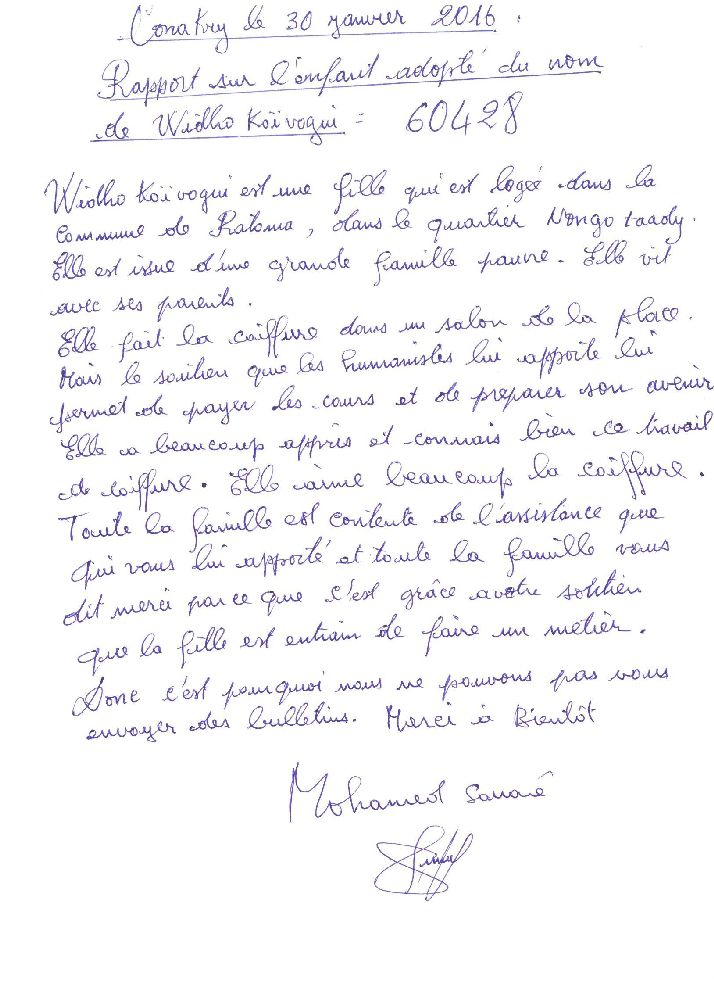 Conakry le 30 janvier 2016.
Rapport sur l'enfant adopté du nom
de Widho Koïvogui = 60428
Widho Koïvogui est une fille qui est logée dans la
Commune de Ratoma, dans le quartier Nongo taady.
Elle est issue d'une grande famille pauvre. Elle vit
avec ses parents.
Elle fait la coiffure dans un salon de la place.
Mais le soutien que les humanistes lui apporte lui
permet de payer les cours et de preparer son avenir
Elle a beaucoup appris et connais bien ce travail
de coiffure. Elle aime beaucoup la coiffure.
Toute la famille est contente de l'assistance que
qui vous lui apporté et toute la famille vous
dit merci parce que c'est grâce a votre soutien
que la fille est entrain de faire un metier.
Donc c'est pourquoi nous ne pouvons pas vous
envoyer des bulletins. Merci à Bientôt
Mohamed